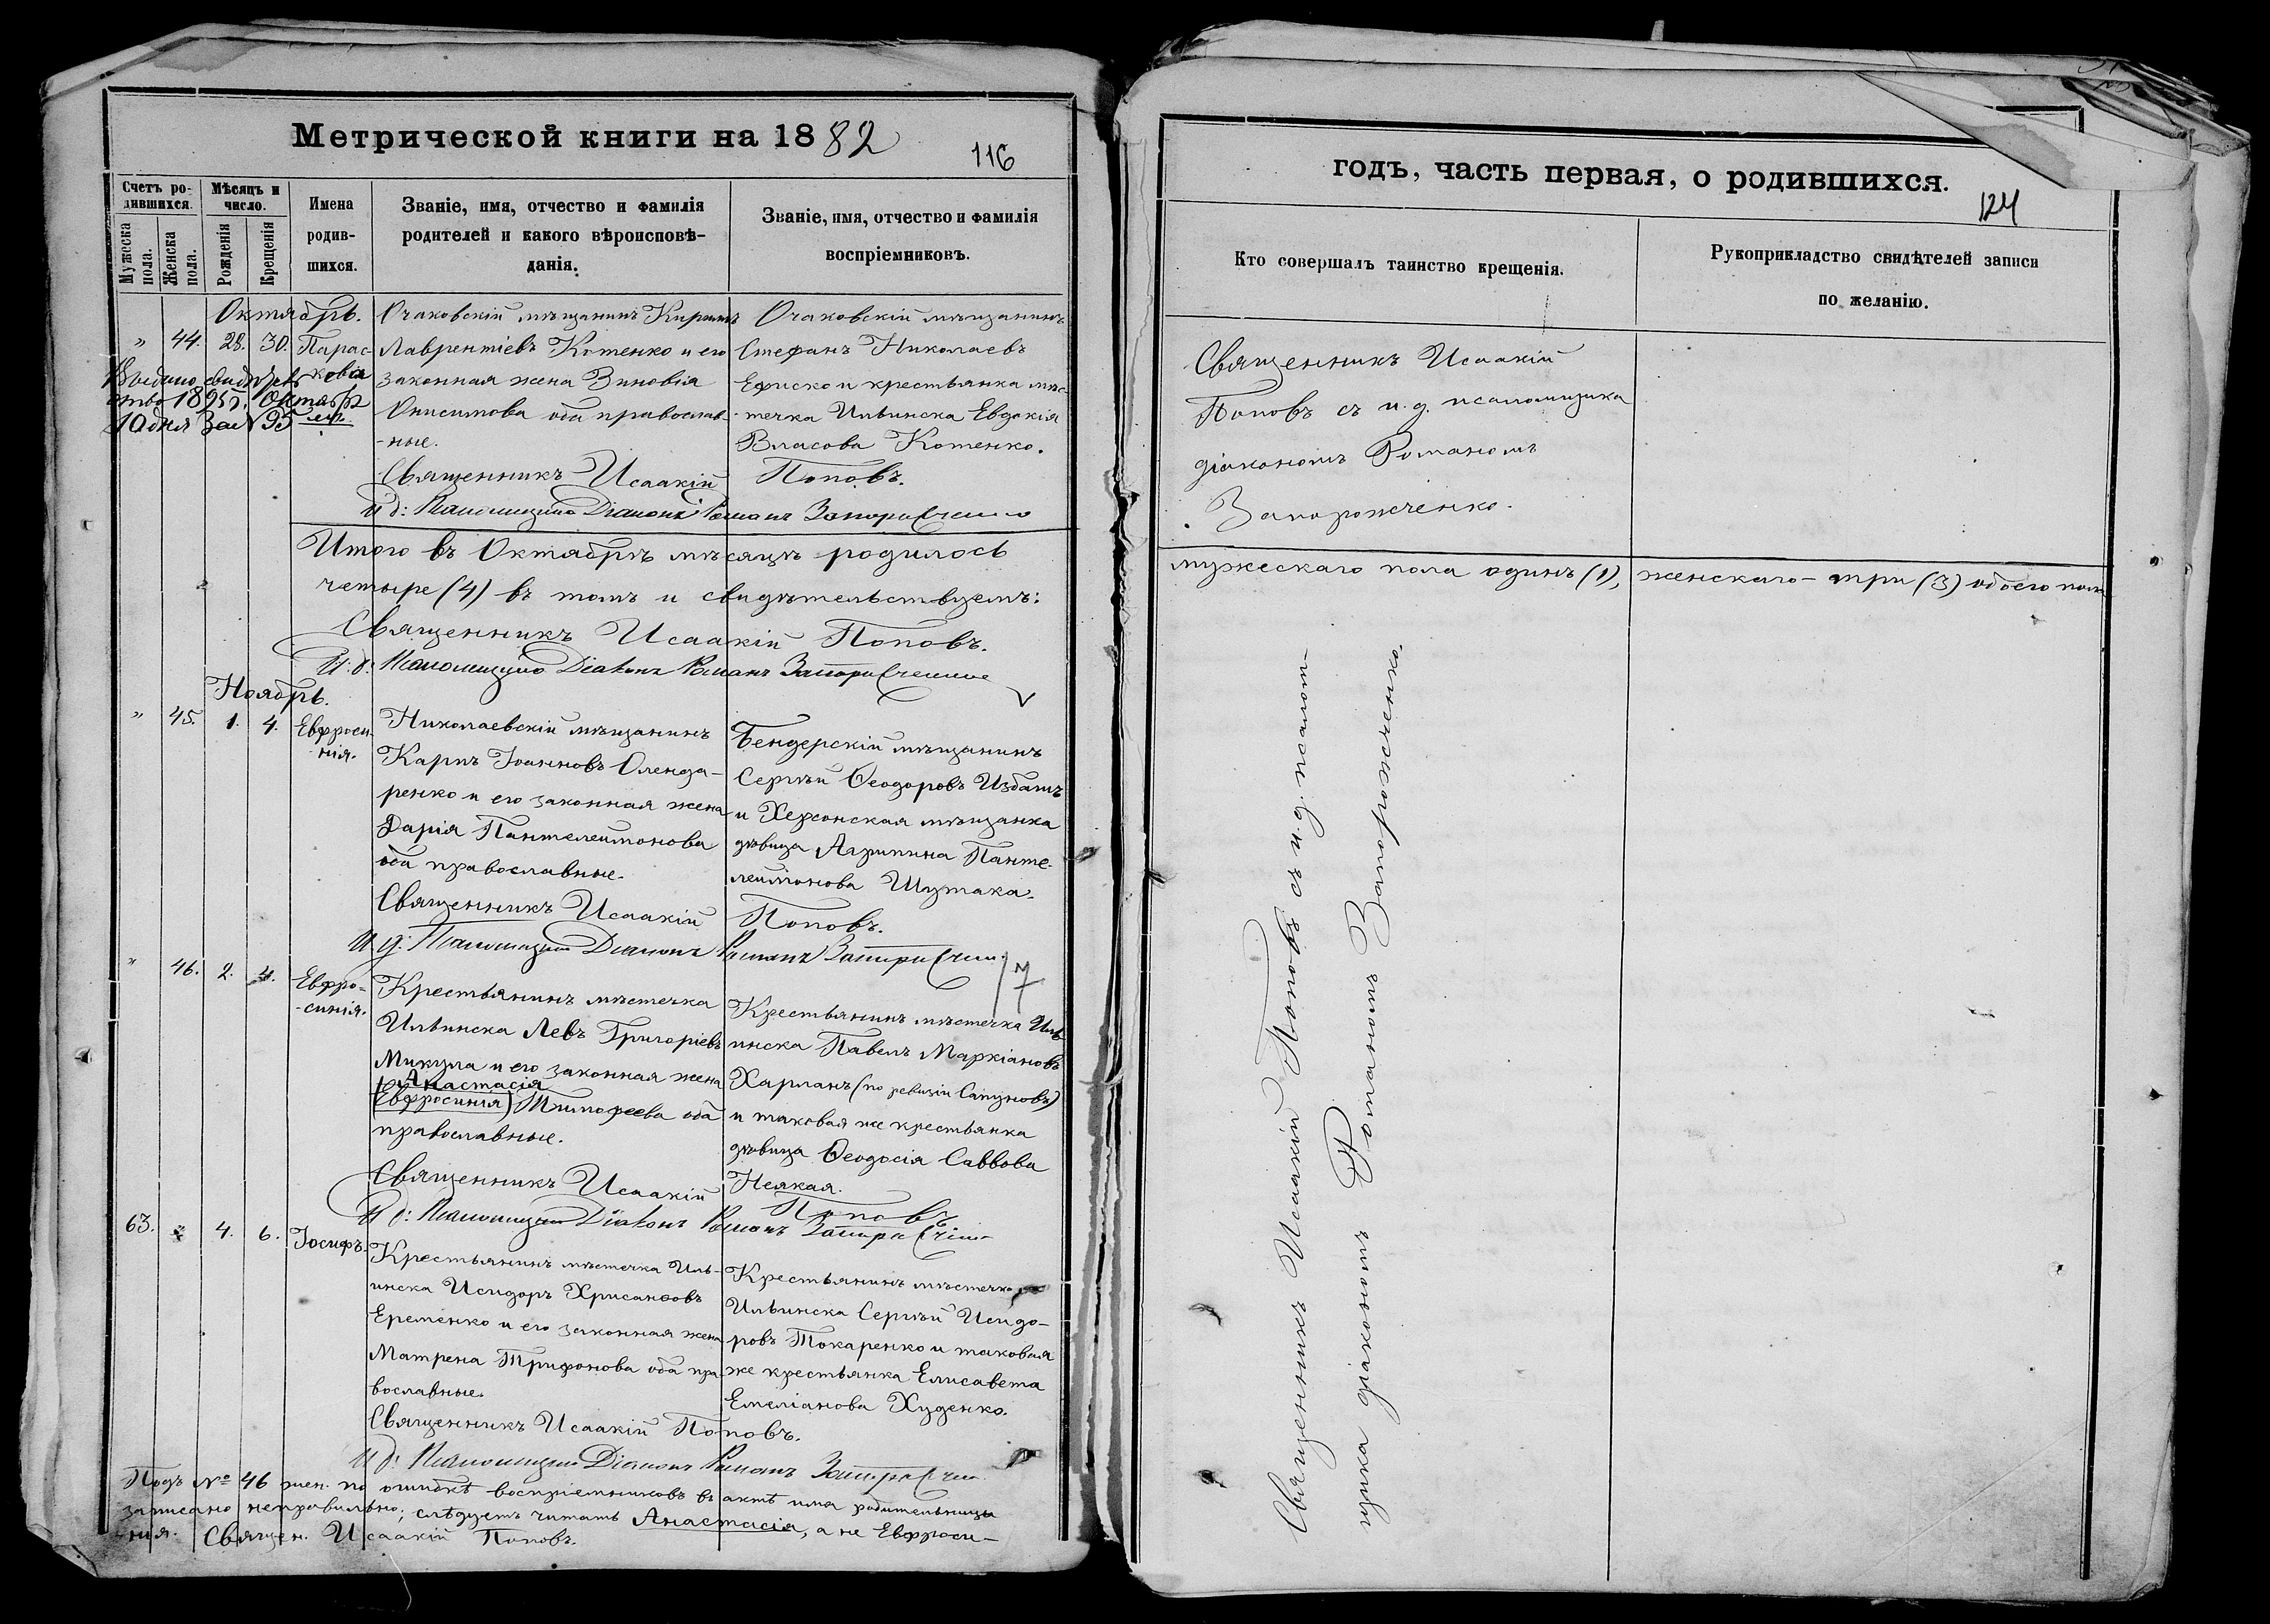 Метрической книги на 1882
116
Счетъ ро-
дившихся.
Мѣсяцъ и
число.
Мужеска
пола.
Женска
пола.
Рожденія
Крещенія
Имена
родив-
шихся.
Званіе, имя, отчество и фамилія
родителей и какого вѣроисповѣ-
данія.
Званіе, имя, отчество и фамилія
воспріемниковъ.
Октябрь.
" 44. 28. 30. Парас-
ковія
Очаковскій мѣщанинъ
Лаврентіевъ Котенко и его
законная жена Зиновія
Онисимова оба православ-
-ные.
Очаковскій мѣщанинъ
Стефанъ Николаевъ
и крестьянка мѣс-
-течка Ильинска Евдокія
Власова Котенко.
Священникъ Исаакій Поповъ.
И д: Діаконъ Романъ
Итого въ Октябрѣ мѣсяцѣ родилось
четыре (4) въ томъ и свидѣтельствуемъ:
Священникъ Исаакій Поповъ.
И. д: Діаконъ Романъ
Ноябрь.
" 45. 1. 4. Евфроси-
нія.
Николаевскій мѣщанинъ
Карпъ Іоанновъ Оленда-
ренко и его законная жена
Дарія Пантелеимонова
оба православные.
Бендерскій мѣщанинъ
Сергѣй Ѳеодоровъ Избашъ
и Херсонская мѣщанка
дѣвица Агрипина Панте-
леимонова Шутака.
Священникъ Исаакій Поповъ.
И д: Діаконъ Романъ
" 46. 2. 4. Евфро-
-синія.
Крестьянинъ мѣстечка
Ильинска Левъ Григоріевъ
Микула и его законная жена
Анастасія
(Евфросинія) Тимофеева оба
православные.
Крестьянинъ мѣстечка Иль-
инска Павелъ Маркіановъ
Харланъ (по ревизіи Сапуновъ)
и таковая же крестьянка
дѣвица Ѳеодосія Саввова
Неякая.
Священникъ Исаакій Поповъ
И д: Діаконъ Романъ
63. " 4. 6. Іосифъ.
Крестьянинъ мѣстечка Иль-
инска Исидоръ Хрисанѳовъ
Еременко и его законная жена
Матрена Трифонова оба пра-
вославные.
Крестьянинъ мѣстечка
Ильинска Сергѣй Исидо-
ровъ Токаренко и таковая
же крестьянка Елисавета
Емеліанова Худенко.
Священникъ Исаакій Поповъ.
И д: Діаконъ Романъ
Подъ № 46 жен. по ошибкѣ воспріемниковъ въ актѣ имя родительницы
записано неправильно; слѣдуетъ читать Анастасія, а не Евфроси-
-нія. Священ. Исаакій Поповъ.
годъ, часть первая, о родившихся.
124
Кто совершалъ таинство крещенія.
Рукоприкладство свидѣтелей записи
по желанію.
Священникъ Исаакій
Поповъ съ и. д. псаломщика
діакономъ Романомъ
Запорожченко.
мужескаго пола одинъ (1), женскаго - три (3) обоего пола
Священникъ Исаакій Поповъ съ и. д. псалом-
щика діакономъ Романомъ Запорожченко.